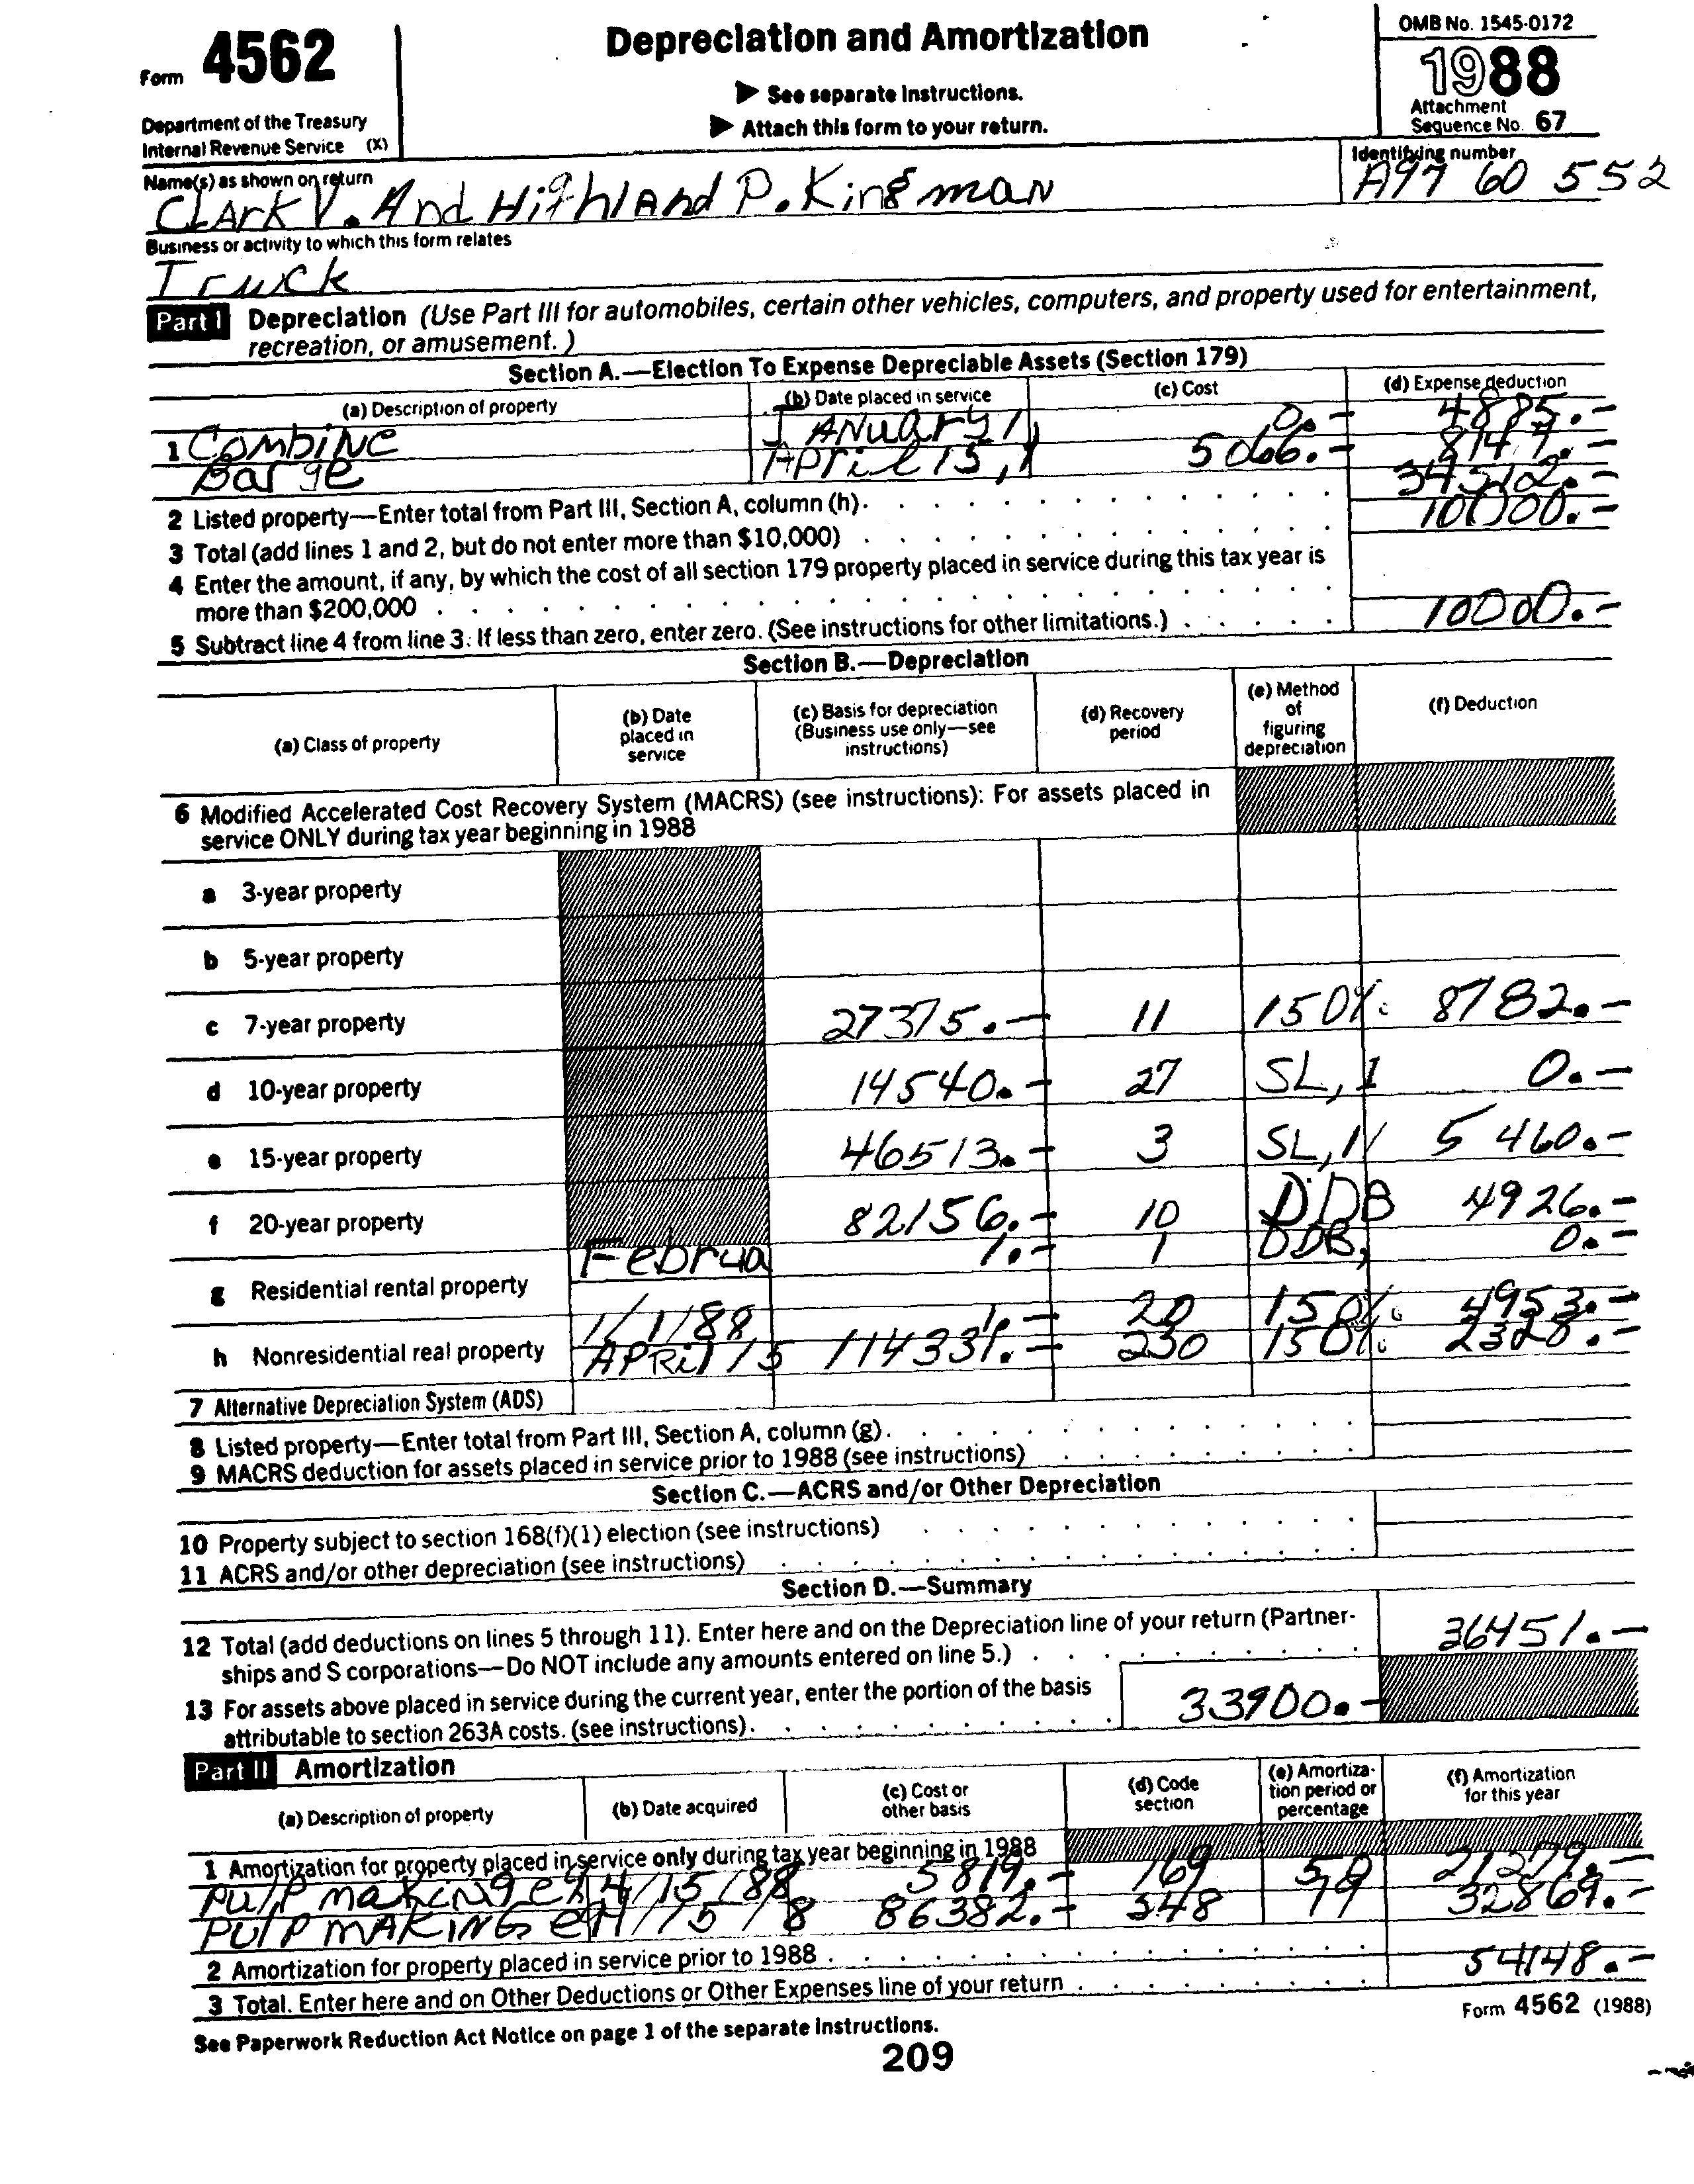 Form 4562
Department of the Treasury
Internal Revenue Service (X)
Depreciation and Amortization
▶ See separate Instructions.
▶ Attach this form to your return.
OMB No. 1545-0172
1988
Attachment
Sequence No. 67
Name(s) as shown on return
CLArk V. And HighlAnd P. Kingman
Identifying number
A97 60 552
Business or activity to which this form relates
Truck
Part I Depreciation (Use Part III for automobiles, certain other vehicles, computers, and property used for entertainment,
recreation, or amusement.)
Section A.—Election To Expense Depreciable Assets (Section 179)
(a) Description of property (b) Date placed in service (c) Cost (d) Expense deduction
1 CombiNe JANuary 1, 0.- 4885.-
Barge April 15, 1 5066.- 8147.-
2 Listed property—Enter total from Part III, Section A, column (h). 34512.-
3 Total (add lines 1 and 2, but do not enter more than $10,000) 10000.-
4 Enter the amount, if any, by which the cost of all section 179 property placed in service during this tax year is
more than $200,000
5 Subtract line 4 from line 3. If less than zero, enter zero. (See instructions for other limitations.) 10000.-
Section B.—Depreciation
(a) Class of property
(b) Date placed in service
(c) Basis for depreciation (Business use only—see instructions)
(d) Recovery period
(e) Method of figuring depreciation
(f) Deduction
6 Modified Accelerated Cost Recovery System (MACRS) (see instructions): For assets placed in
service ONLY during tax year beginning in 1988
a 3-year property
b 5-year property
c 7-year property 27375.- 11 150% 8782.-
d 10-year property 14540.- 27 SL, 1 0.-
e 15-year property 46513.- 3 SL, 1/ 5460.-
f 20-year property 82156.- 10 DDB 4926.-
Februa 1.- 1 DDB, 0.-
g Residential rental property
1/1/88 1.- 20 150% 4953.-
h Nonresidential real property APRil 15 114331.- 230 150% 2328.-
7 Alternative Depreciation System (ADS)
8 Listed property—Enter total from Part III, Section A, column (g).
9 MACRS deduction for assets placed in service prior to 1988 (see instructions)
Section C.—ACRS and/or Other Depreciation
10 Property subject to section 168(f)(1) election (see instructions)
11 ACRS and/or other depreciation (see instructions)
Section D.—Summary
12 Total (add deductions on lines 5 through 11). Enter here and on the Depreciation line of your return (Partner-
ships and S corporations—Do NOT include any amounts entered on line 5.) 36451.-
13 For assets above placed in service during the current year, enter the portion of the basis
attributable to section 263A costs. (see instructions). 33900.-
Part II Amortization
(a) Description of property
(b) Date acquired
(c) Cost or other basis
(d) Code section
(e) Amortization period or percentage
(f) Amortization for this year
1 Amortization for property placed in service only during tax year beginning in 1988
Pulp making eq 4/15/88 5819.- 169 50 21279.-
PUlP MAKING eq 1/15/8 86382.- 348 19 32869.-
2 Amortization for property placed in service prior to 1988
3 Total. Enter here and on Other Deductions or Other Expenses line of your return 54148.-
See Paperwork Reduction Act Notice on page 1 of the separate Instructions.
Form 4562 (1988)
209